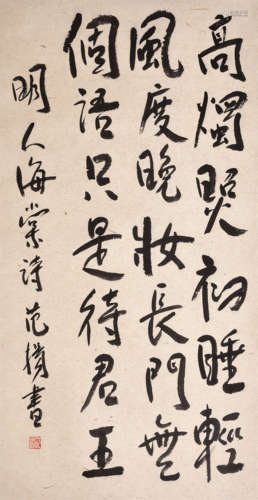 高燭照初睡輕
風度晚妝長門無
個語只是待君王
明人海棠詩 范書